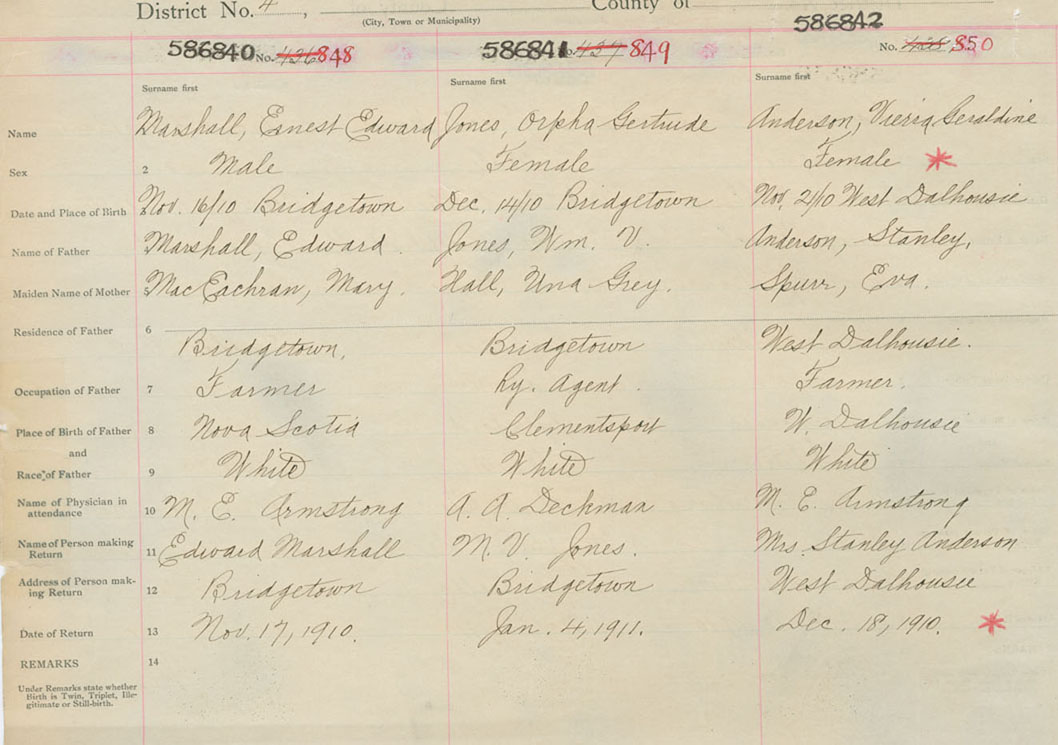 District No. 4, County of
(City, Town or Municipality)
586840 No. 848 586841 No. 849 586842 No. 850
Surname first Surname first Surname first
Name Marshall, Ernest Edward Jones, Orpha Gertrude Anderson, Vierra Geraldine
Sex 2 Male Female Female *
Date and Place of Birth Nov. 16/10 Bridgetown Dec. 14/10 Bridgetown Nov. 21/10 West Dalhousie
Name of Father Marshall, Edward. Jones, Wm. V. Anderson, Stanley,
Maiden Name of Mother 5 MacEachran, Mary. Hall, Una Grey. Spurr, Eva.
Residence of Father 6 Bridgetown, Bridgetown West Dalhousie.
Occupation of Father 7 Farmer Ry. Agent. Farmer.
Place of Birth of Father 8 Nova Scotia Clementsport W. Dalhousie
and
Race of Father 9 White White White
Name of Physician in attendance 10 M. E. Armstrong A. A. Deckman M. E. Armstrong
Name of Person making Return 11 Edward Marshall M. V. Jones. Mrs Stanley Anderson
Address of Person mak-ing Return 12 Bridgetown Bridgetown West Dalhousie
Date of Return 13 Nov. 17, 1910. Jan. 4, 1911. Dec. 18, 1910. *
REMARKS 14
Under Remarks state whether
Birth is Twin, Triplet, Ille-
gitimate or Still-birth.